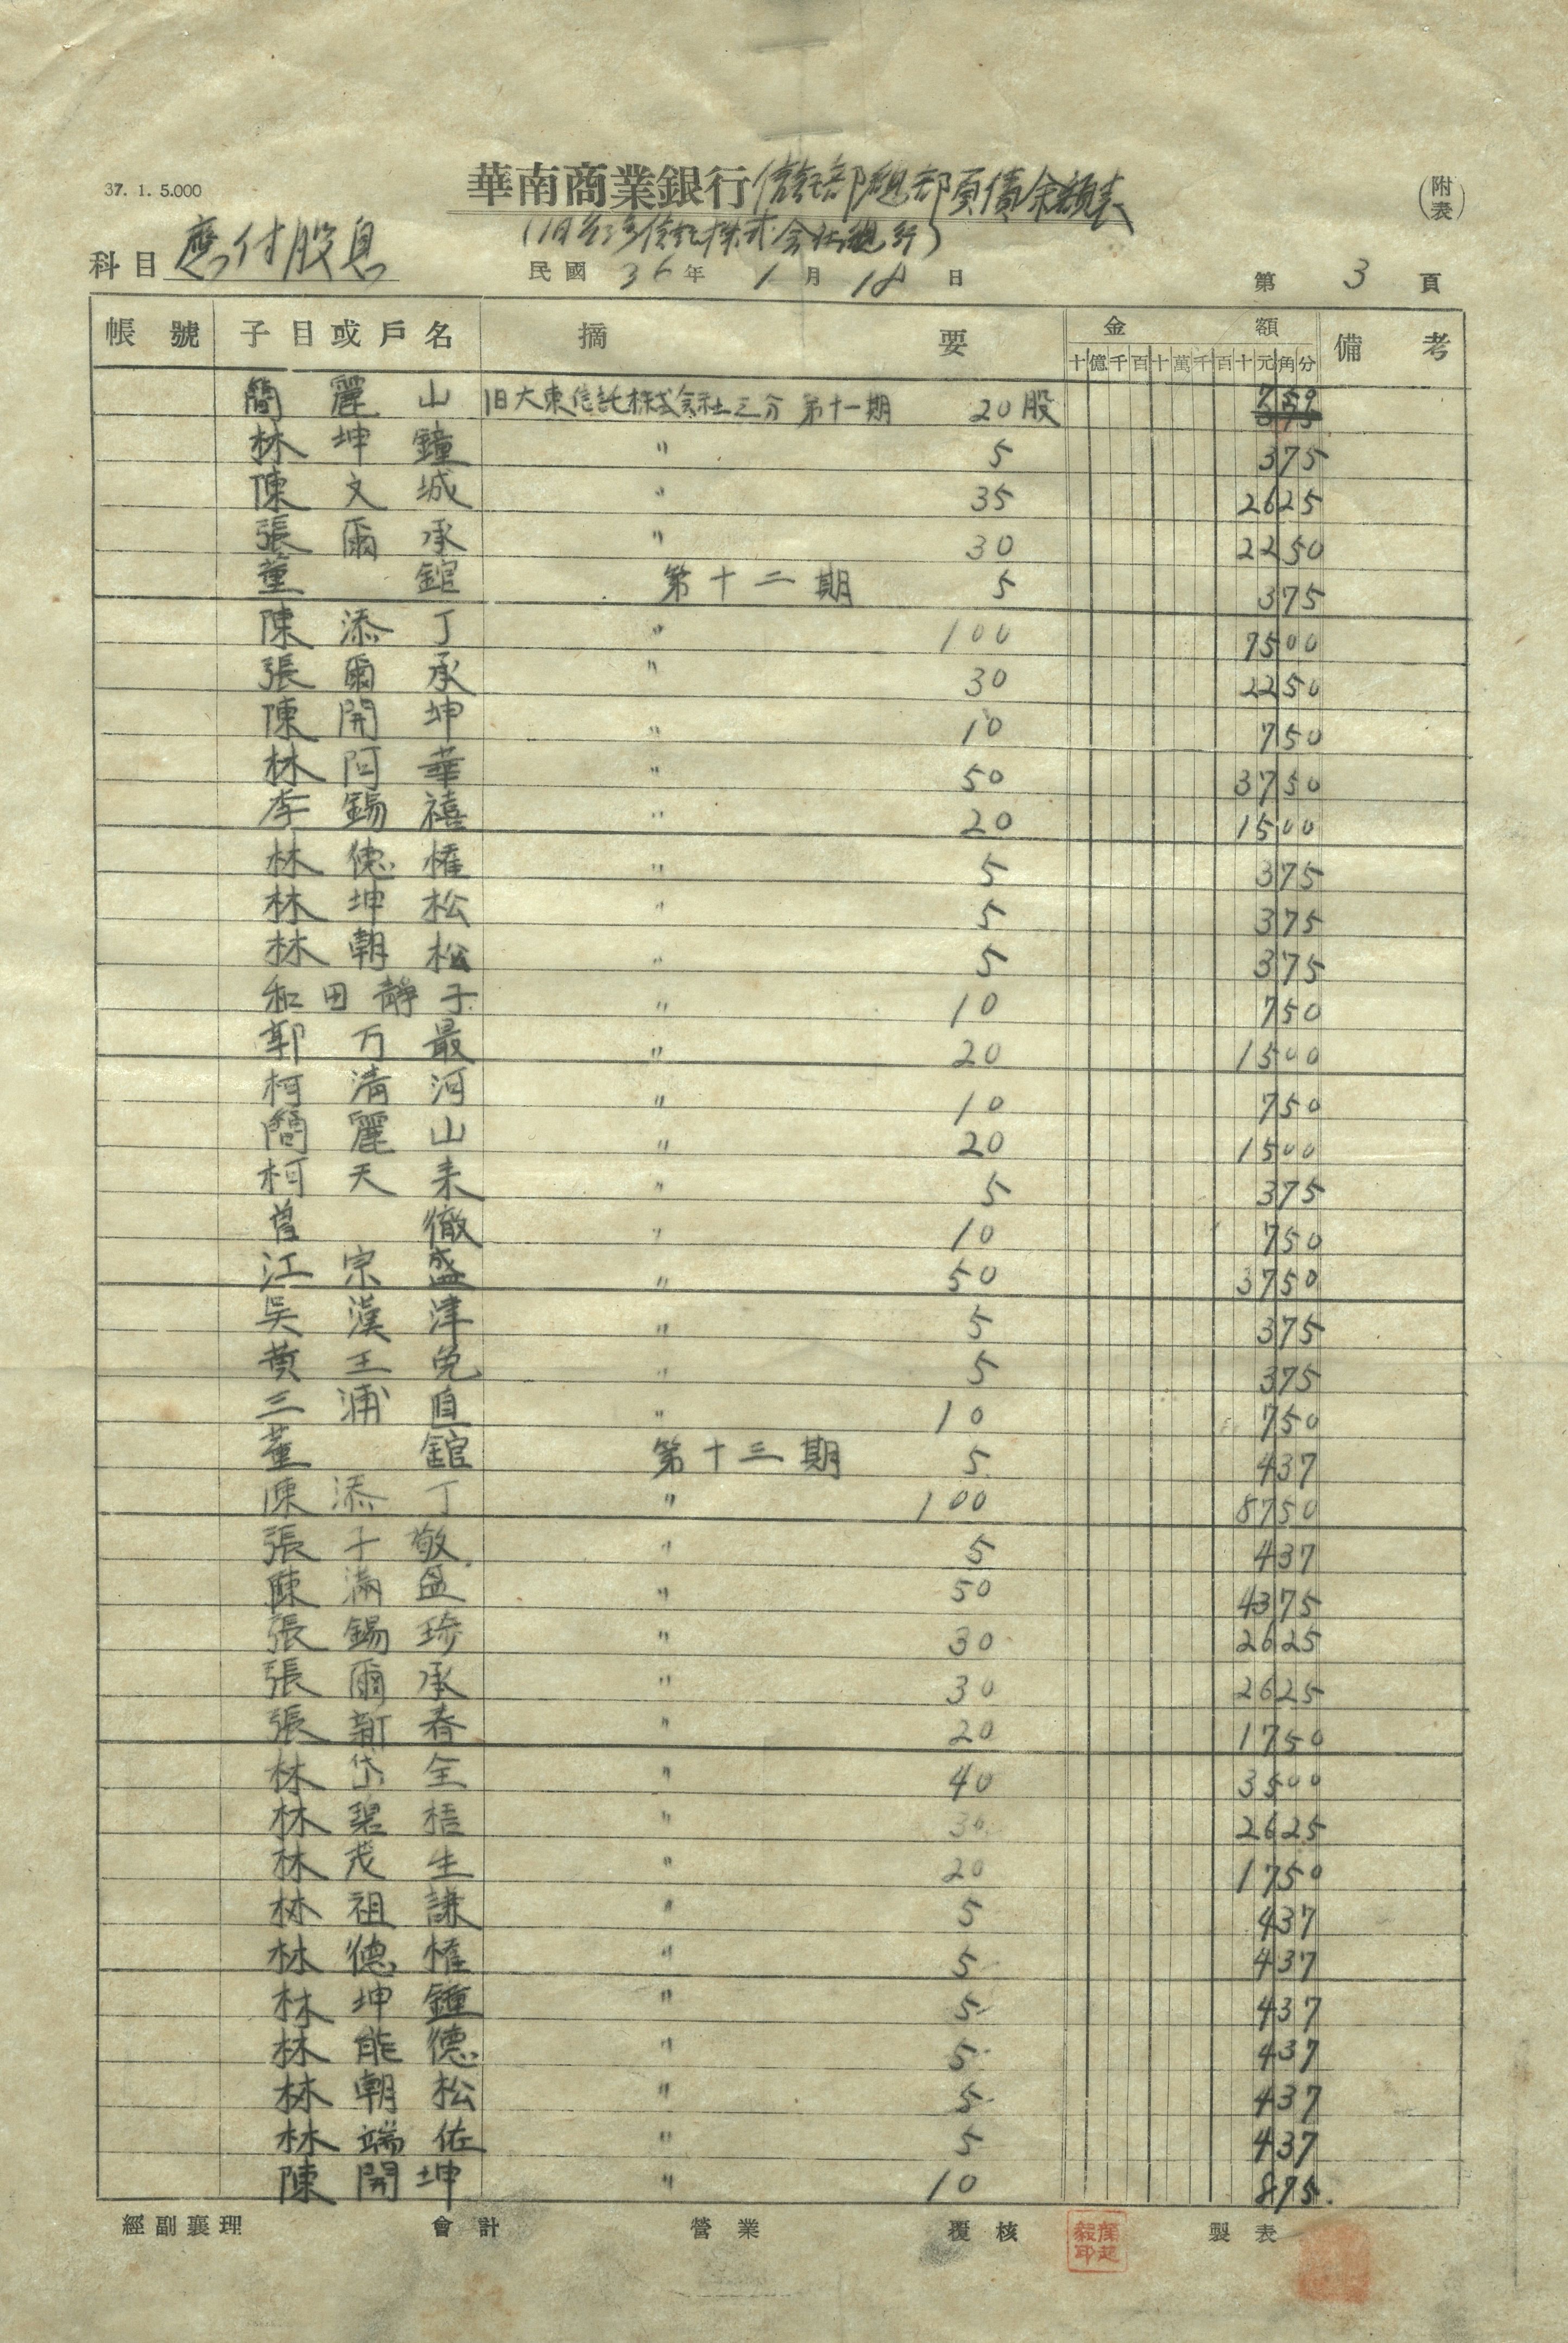 37. 1. 5.000
華南商業銀行信託部總部負債余額表
(旧台湾信託株式会社總行)
(附表)
科目 應付股息
民國 36 年 1 月 18 日
第 3 頁
帳號 子目或戶名 摘要 金額 備考
十億千百十萬千百十元角分
簡麗山 旧大東信託株式会社三分 第十一期 20股 750
林坤鐘 〃 5 375
陳文城 〃 35 2625
張爾承 〃 30 2250
董錧 第十二期 5 375
陳添丁 〃 100 7500
張爾承 〃 30 2250
陳開坤 〃 10 750
林阿華 〃 50 3750
李錫禧 〃 20 1500
林德權 〃 5 375
林坤松 〃 5 375
林朝松 〃 5 375
和田靜子 〃 10 750
郭万最 〃 20 1500
柯清河 〃 10 750
簡麗山 〃 20 1500
柯天来 〃 5 375
曾徹 〃 10 750
江宗盛 〃 50 3750
吳漢津 〃 5 375
黄王兔 〃 5 375
三浦直 〃 10 750
董錧 第十三期 5 437
陳添丁 〃 100 8750
張千敬 〃 5 437
陳滿盈 〃 50 4375
張錫珍 〃 30 2625
張爾承 〃 30 2625
張新春 〃 20 1750
林岱全 〃 40 3500
林碧梧 〃 30 2625
林茂生 〃 20 1750
林祖謙 〃 5 437
林德權 〃 5 437
林坤鍾 〃 5 437
林能德 〃 5 437
林朝松 〃 5 437
林端佐 〃 5 437
陳開坤 〃 10 875
經副襄理 會計 營業 覆核 製表